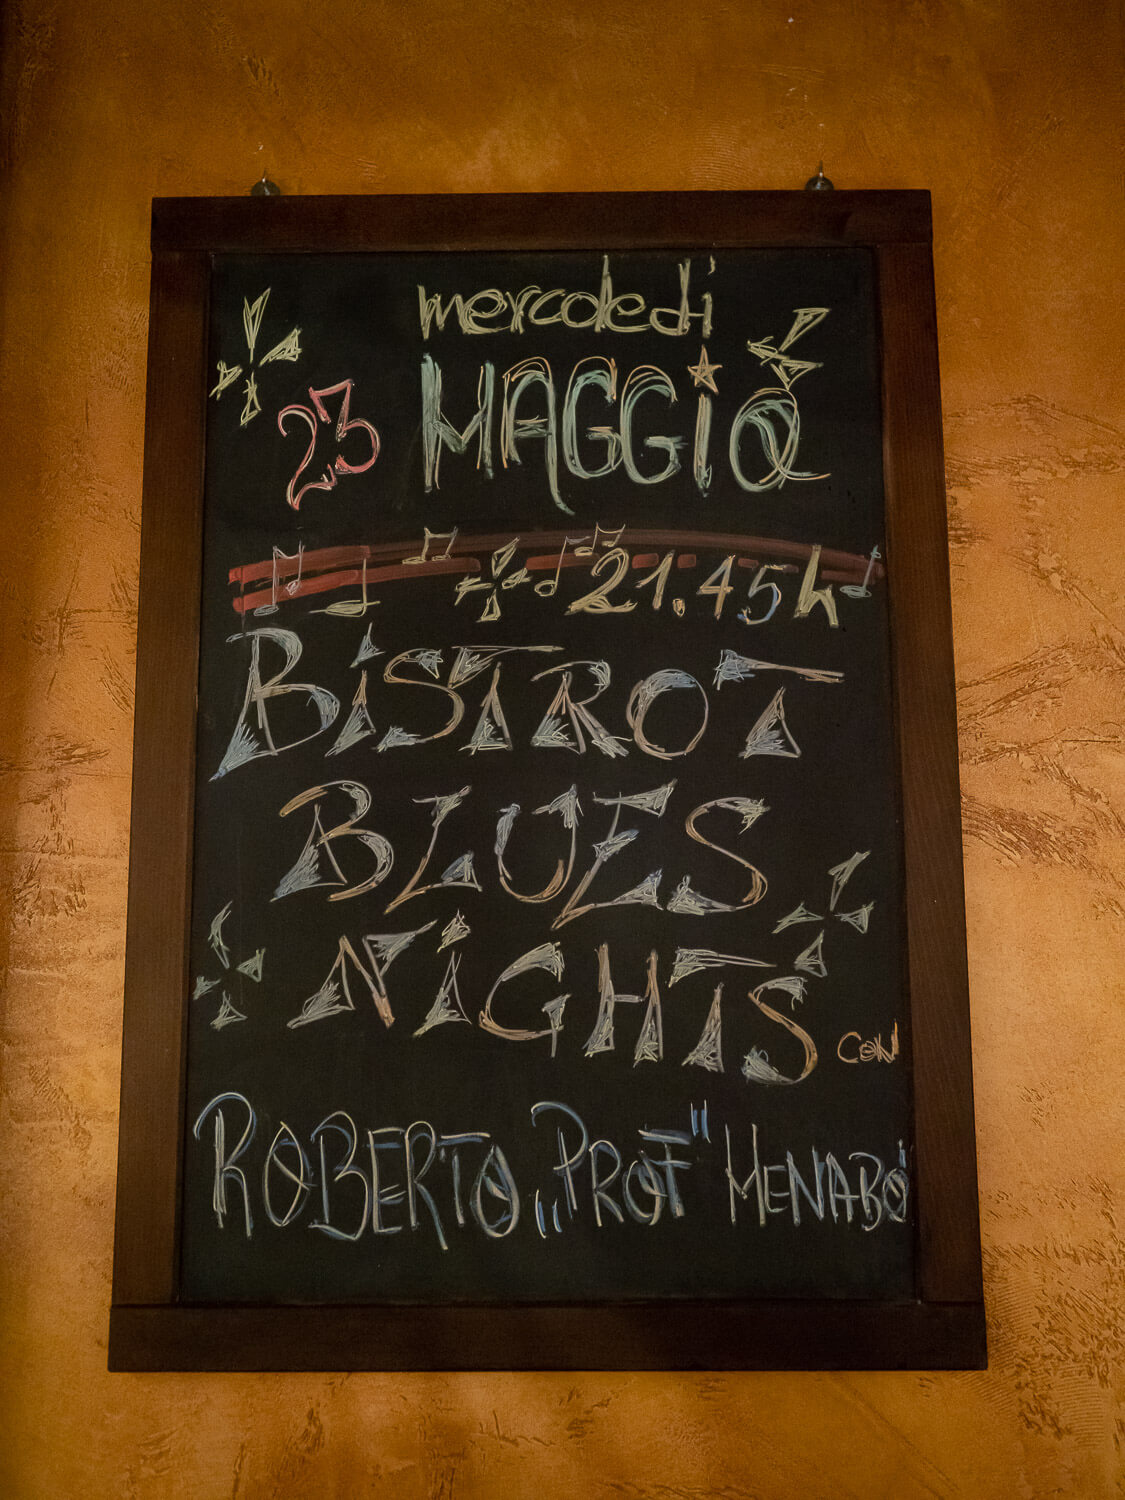 mercoledì
23 MAGGIO
21.45h
BiSTROT
BLUES
NiGHTS CON
ROBERTO „PROF" MENABÒ